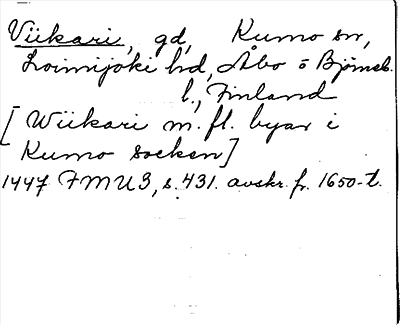 Viikari, gd, Kumo sn,
Loimijoki hd, Åbo o Björneb.
l., Finland
[Wiikari m. fl. byar i
Kumo socken]
1447 FMU 3, s. 431. avskr. fr. 1650-t.